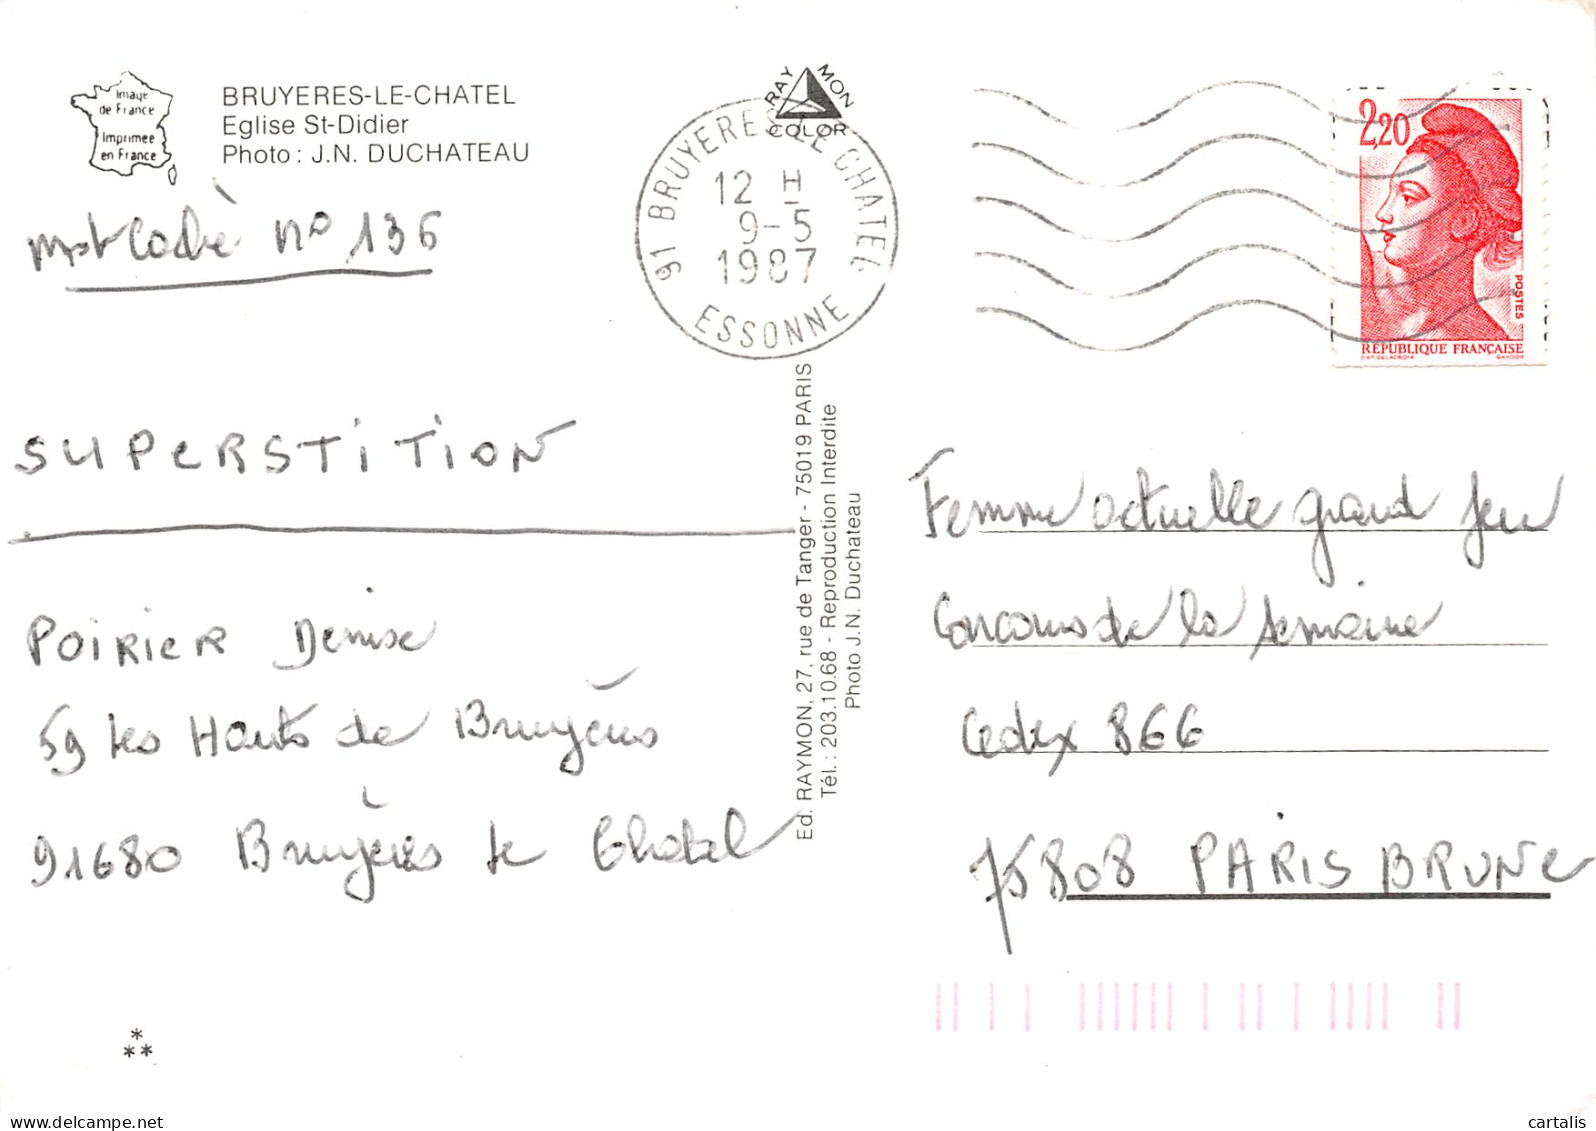 Image
de France
Imprimée
en France
BRUYERES-LE-CHATEL
Eglise St-Didier
Photo : J.N. DUCHATEAU
RAYMON
COLOR
91 BRUYERES LE CHATEL
12 H
9-5
1987
ESSONNE
2,20
POSTES
REPUBLIQUE FRANÇAISE
D'AP. DELACROIX GANDON
mot Codé n° 136
SUPERSTITION
POIRIER Denise
59 les Hauts de Bruyères
91680 Bruyères le Chatel
Ed. RAYMON, 27, rue de Tanger - 75019 PARIS
Tél. : 203.10.68 - Reproduction Interdite
Photo J.N. Duchateau
Femme actuelle grand jeu
Concours de la semaine
Cedex 866
75808 PARIS BRUNE
*
**
cartalis
delcampe.net